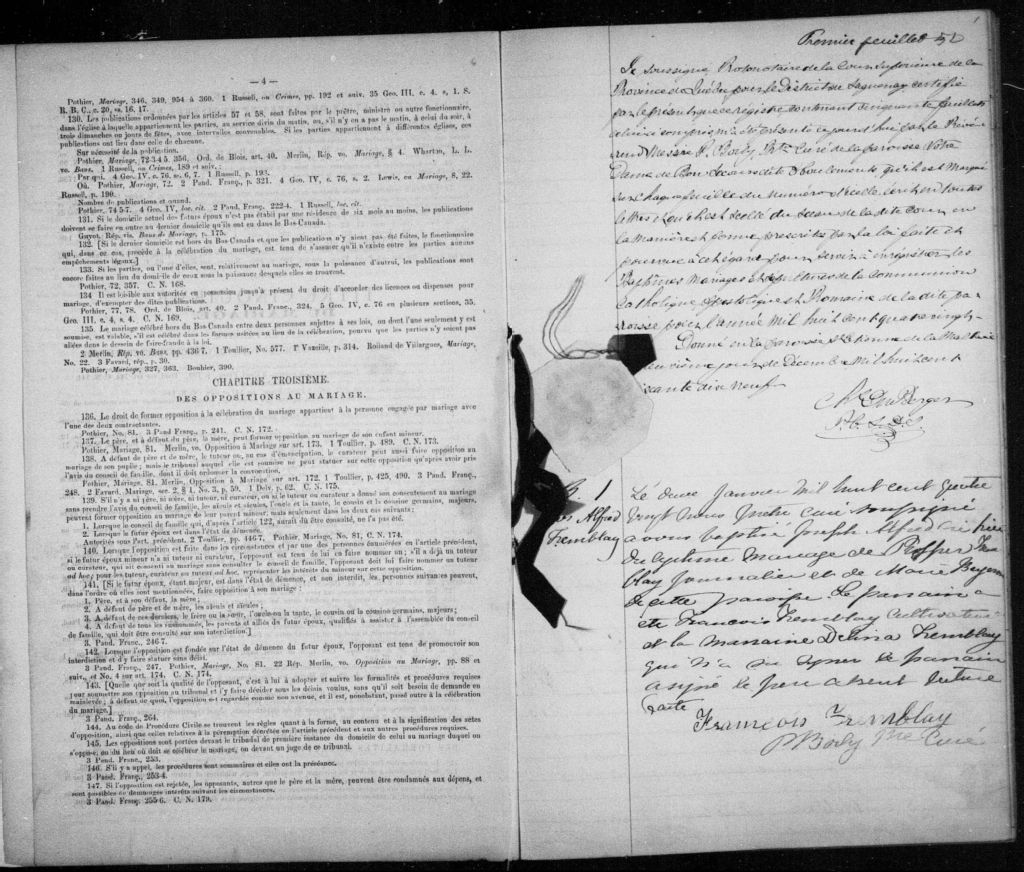 — 4 —
Pothier, Mariage, 346, 349, 354 à 360. 1 Russell, on Crimes, pp. 192 et suiv. 35 Geo. III, c. 4. s, 1. S.
R. B. C., c. 20, ss. 16, 17.
130. Les publications ordonnées par les articles 57 et 58, sont faites par le prêtre, ministre ou autre fonctionnaire,
dans l'église à laquelle appartiennent les parties, au service divin du matin, ou, s'il n'y en a pas le matin, à celui du soir, à
trois dimanches ou jours de fêtes, avec intervalles convenables. Si les parties appartiennent à différentes églises, ces
publications ont lieu dans celle de chacune.
Sur nécessité de la publication.
Pothier, Mariage, 72-3-4-5. 356, Ord. de Blois, art. 40. Merlin, Rép. vo. Mariage, § 4. Wharton, L. L.
vo. Bans. 1 Russell, on Crimes, 189 et suiv.
Par qui. 4 Geo. IV, c. 76, ss. 6, 7. 1 Russell, p. 193.
Où. Pothier, Mariage, 72. 2 Pand. Franç., p. 321. 4 Geo. IV, c. 76, s. 2. Lewis, on Mariage, 8, 22.
Russell, p. 190.
Nombre de publications et quand.
Pothier, 74-5-7. 4 Geo. IV, loc. cit. 2 Pand. Franç. 222-4. 1 Russell, loc. cit.
131. Si le domicile actuel des futurs époux n'est pas établi par une résidence de six mois au moins, les publications
doivent se faire en outre au dernier domicile qu'ils ont eu dans le Bas-Canada.
Guyot. Rép. vis. Bans de Mariage, p. 175.
132. [Si le dernier domicile est hors du Bas-Canada et que les publications n'y aient pas été faites, le fonctionnaire
qui, dans ce cas, procède à la célébration du mariage, est tenu de s'assurer qu'il n'existe entre les parties aucuns
empêchements légaux.]
133. Si les parties, ou l'une d'elles, sont, relativement au mariage, sous la puissance d'autrui, les publications sont
encore faites au lieu du domicile de ceux sous la puissance desquels elles se trouvent.
Pothier, 72, 357. C. N. 168.
134 Il est loisible aux autorités en possession jusqu'à présent du droit d'accorder des licences ou dispenses pour
mariage, d'exempter des dites publications.
Pothier, 77, 78. Ord. de Blois, art. 40, 2 Pand. Franç., 324. 5 Geo. IV, c. 76 en plusieurs sections, 35,
Geo. III, c. 4, s. 4. C. N. 169.
135. Le mariage célébré hors du Bas-Canada entre deux personnes sujettes à ses lois, ou dont l'une seulement y est
soumise, est valable, s'il est célébré dans les formes usitées au lieu de la célébration, pourvu que les parties n'y soient pas
allées dans le dessein de faire fraude à la loi.
2 Merlin, Rép. vo. Bans, pp. 436-7. 1 Toullier, No. 577. 1" Vazeille, p. 314. Rolland de Villargues, Mariage,
No. 22. 3 Favard, rép., p. 30.
Pothier, Mariage, 327, 363. Bouhier, 390.
CHAPITRE TROISIÈME.
DES OPPOSITIONS AU MARIAGE.
136. Le droit de former opposition à la célébration du mariage appartient à la personne engagée par mariage avec
l'une des deux contractantes.
Pothier, No. 81. 3 Pand Franç., p. 241. C. N. 172.
137. Le père, et à défaut du père, la mère, peut former opposition au mariage de son enfant mineur.
Pothier, Mariage, 81. Merlin, vo. Opposition à Mariage sur art. 173. 1 Toullier, p. 489. C. N. 173.
138. A défaut de père et de mère, le tuteur ou, au cas d'émancipation, le curateur peut aussi faire opposition au
mariage de son pupille ; mais le tribunal auquel elle est soumise ne peut statuer sur cette opposition qu'après avoir pris
l'avis du conseil de famille, dont il doit ordonner la convocation.
Pothier, Mariage, 81. Merlin, Opposition à Mariage sur art. 172. 1 Toullier, p. 425, 490. 3 Pand. Franç.,
248. 2 Favard, Mariage, sec. 2, § 1, No. 3, p. 59. 1 Delv. p. 62. C. N. 175.
139. S'il n'y a ni père, ni mère, ni tuteur, ni curateur, ou si le tuteur ou curateur a donné son consentement au mariage
sans prendre l'avis du conseil de famille, les aïeuls et aïeules, l'oncle et la tante, le cousin et la cousine germains, majeurs,
peuvent former opposition au mariage de leur parent mineur, mais seulement dans les deux cas suivants:
1. Lorsque le conseil de famille qui, d'après l'article 122, aurait dû être consulté, ne l'a pas été.
2. Lorsque le futur époux est dans l'état de démence.
Autorités sous l'art. précédent. 2 Toullier, pp. 446-7. Pothier, Mariage, No. 81, C. N. 174.
140. Lorsque l'opposition est faite dans les circonstances et par une des personnes énumérées en l'article précédent,
si le futur époux mineur n'a ni tuteur ni curateur, l'opposant est tenu de lui en faire nommer un ; s'il a déjà un tuteur
ou curateur, qui ait consenti au mariage sans consulter le conseil de famille, l'opposant doit lui faire nommer un tuteur
ad hoc ; pour les tuteur, curateur ou tuteur ad hoc, représenter les intérêts du mineur sur cette opposition.
141. [Si le futur époux, étant majeur, est dans l'état de démence, et non interdit, les personnes suivantes peuvent,
dans l'ordre où elles sont mentionnées, faire opposition à son mariage :
1. Père, et à son défaut, la mère ;
2. A défaut de père et de mère, les aïeuls et aïeules ;
3. A défaut de ces derniers, le frère ou la sœur, l'oncle ou la tante, le cousin ou la cousine germains, majeurs ;
4. A défaut de tous les susnommés, les parents et alliés du futur époux, qualifiés à assister à l'assemblée du conseil
de famille, qui doit être consulté sur son interdiction.]
3 Pand. Franç., 246-7.
142. Lorsque l'opposition est fondée sur l'état de démence du futur époux, l'opposant est tenu de promouvoir son
interdiction et d'y faire statuer sans délai.
3 Pand. Franç., 247. Pothier, Mariage, No. 81. 22 Rép. Merlin, vo. Opposition au Mariage, pp. 88 et
suiv., et No. 4 sur art. 174. C. N. 174.
143. [Quelle que soit la qualité de l'opposant, c'est à lui à adopter et suivre les formalités et procédures requises
pour soumettre son opposition au tribunal et l'y faire décider sous les délais voulus, sans qu'il soit besoin de demande en
mainlevée ; à défaut de quoi, l'opposition est regardée comme non avenue, et il est, nonobstant, passé outre à la célébration
du mariage.]
3 Pand. Franç., 264.
144. Au code de Procédure Civile se trouvent les règles quant à la forme, au contenu et à la signification des actes
d'opposition, ainsi que celles relatives à la péremption décrétée en l'article précédent et aux autres procédures requises.
145. Les oppositions sont portées devant le tribunal de première instance du domicile de celui au mariage duquel on
s'oppose, ou du lieu où doit se célébrer le mariage, ou devant un juge de ce tribunal.
3 Pand. Franç., 253.
146. S'il y a appel, les procédures sont sommaires et elles ont la préséance.
3 Pand. Franç., 253-4.
147. Si l'opposition est rejetée, les opposants, autres que le père et la mère, peuvent être condamnés aux dépens, et
sont passibles de dommages-intérêts suivant les circonstances.
3 Pand. Franç. 255-6. C. N. 179.
Premier feuillet
Je soussigné Protonotaire de la Cour Supérieure de la
Province de Québec pour le District de Saguenay certifie
que le présent registre contenant cinquante feuillets
celui-ci compris m'a été présenté ce jourd'hui par le Révé-
rend Messire P. Boily, Ptre Curé de la paroisse Notre
Dame de Bon Secours dite d'Eboulements qu'il est marqué
sur chaque feuillet du numéro d'icelle écrit en toutes
lettres et qu'il est scellé du sceau de la dite cour en
la manière et forme prescrites par la loi faite et
pourvue à cet égard pour servir à enregistrer les
Baptêmes Mariages et Sépultures de la communion
Catholique Apostolique et Romaine de la dite pa-
roisse pour l'année mil huit cent quatrevingt-
Donné en la paroisse St Etienne de la Malbaie
neuvième jour de Décembre mil huit cent
soixante dix neuf
B. 1
Jos Alfred
Tremblay
Le deux Janvier mil huit cent quatre
vingt nous Prêtre curé soussigné
avons baptisé Joseph Alfred né hier
du légitime mariage de Tremblay
journalier et de Marie
de cette paroisse. Le parrain a
été François Tremblay cultivateur
et la marraine Delima Tremblay
qui n'a su signer le parrain
a signé le père absent lecture
faite
François Tremblay
P Boily Ptre Curé